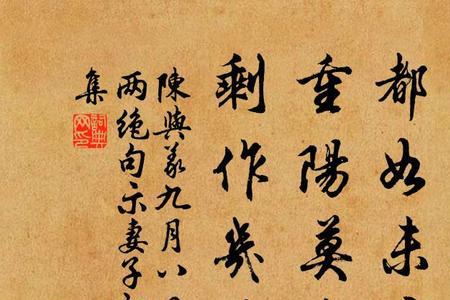 都如未
重陽莫
剩作幾
陳與義九月八
两絶句示妻子
集